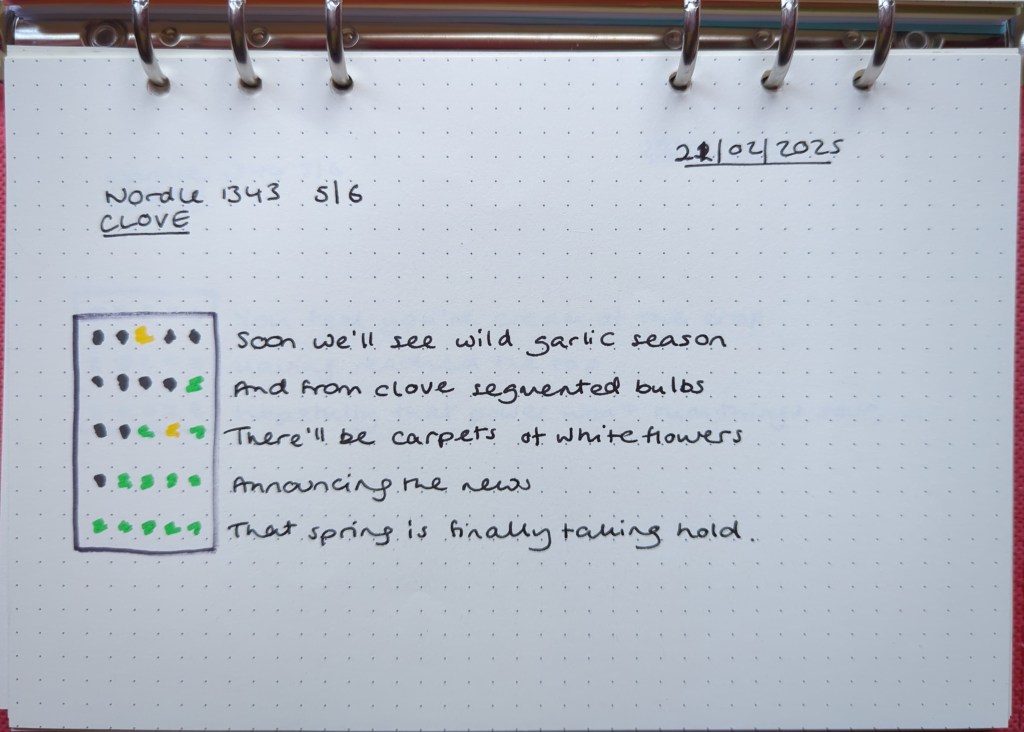 21/02/2025
Wordle 1343 5/6
CLOVE
Soon we'll see wild garlic season
And from clove segmented bulbs
There'll be carpets of white flowers
Announcing the news
That spring is finally taking hold.